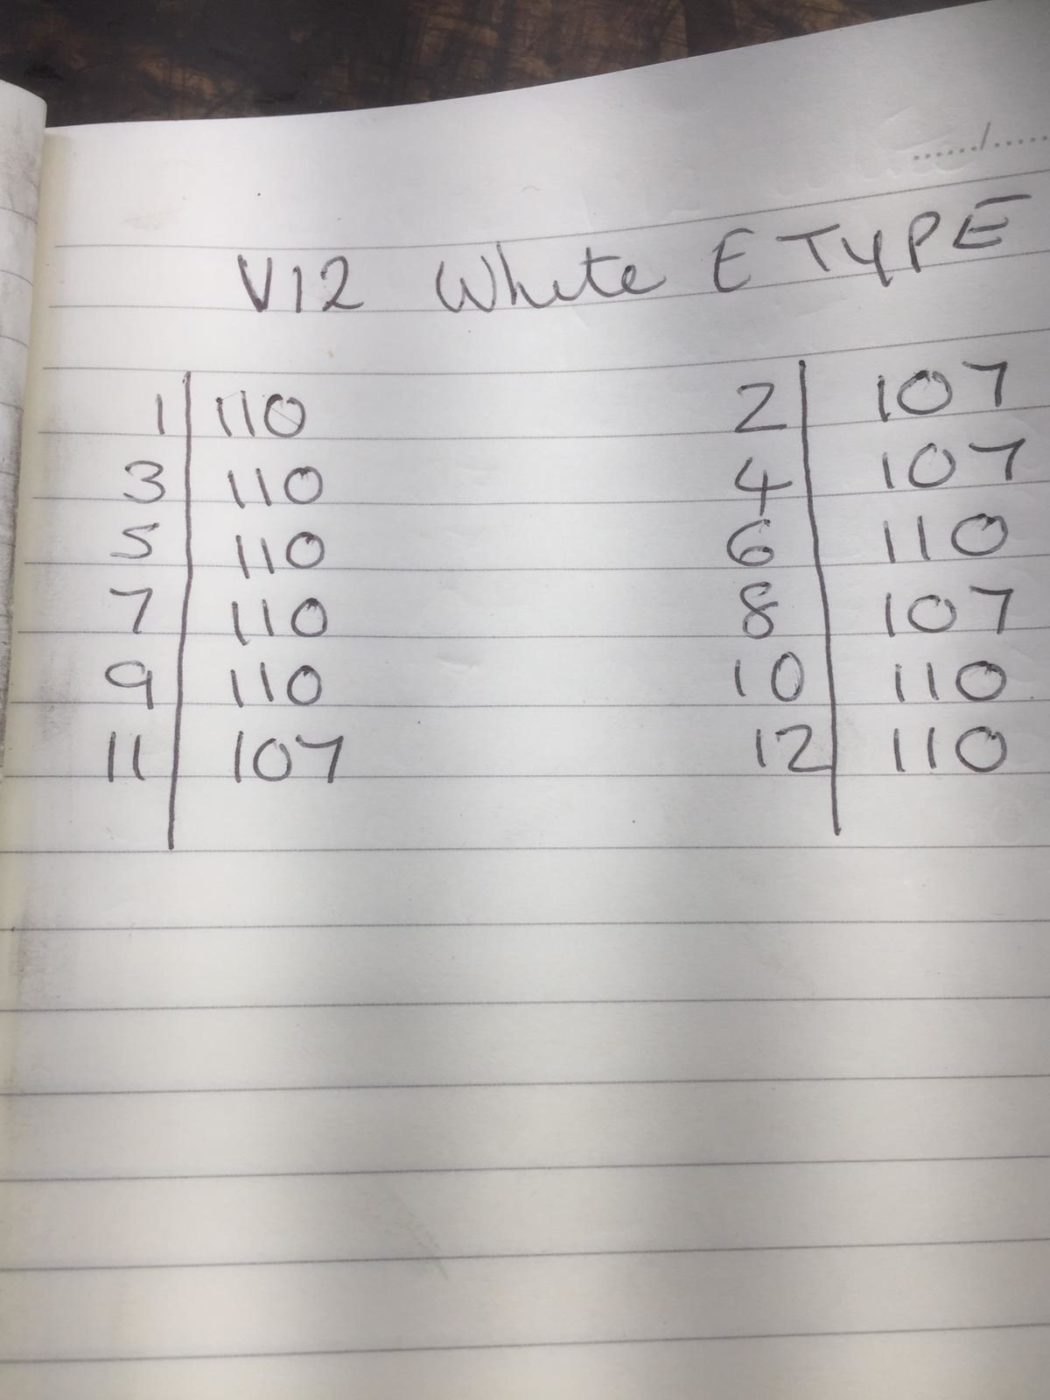 ....../......
V12 White E TYPE
1 110 2 107
3 110 4 107
5 110 6 110
7 110 8 107
9 110 10 110
11 107 12 110